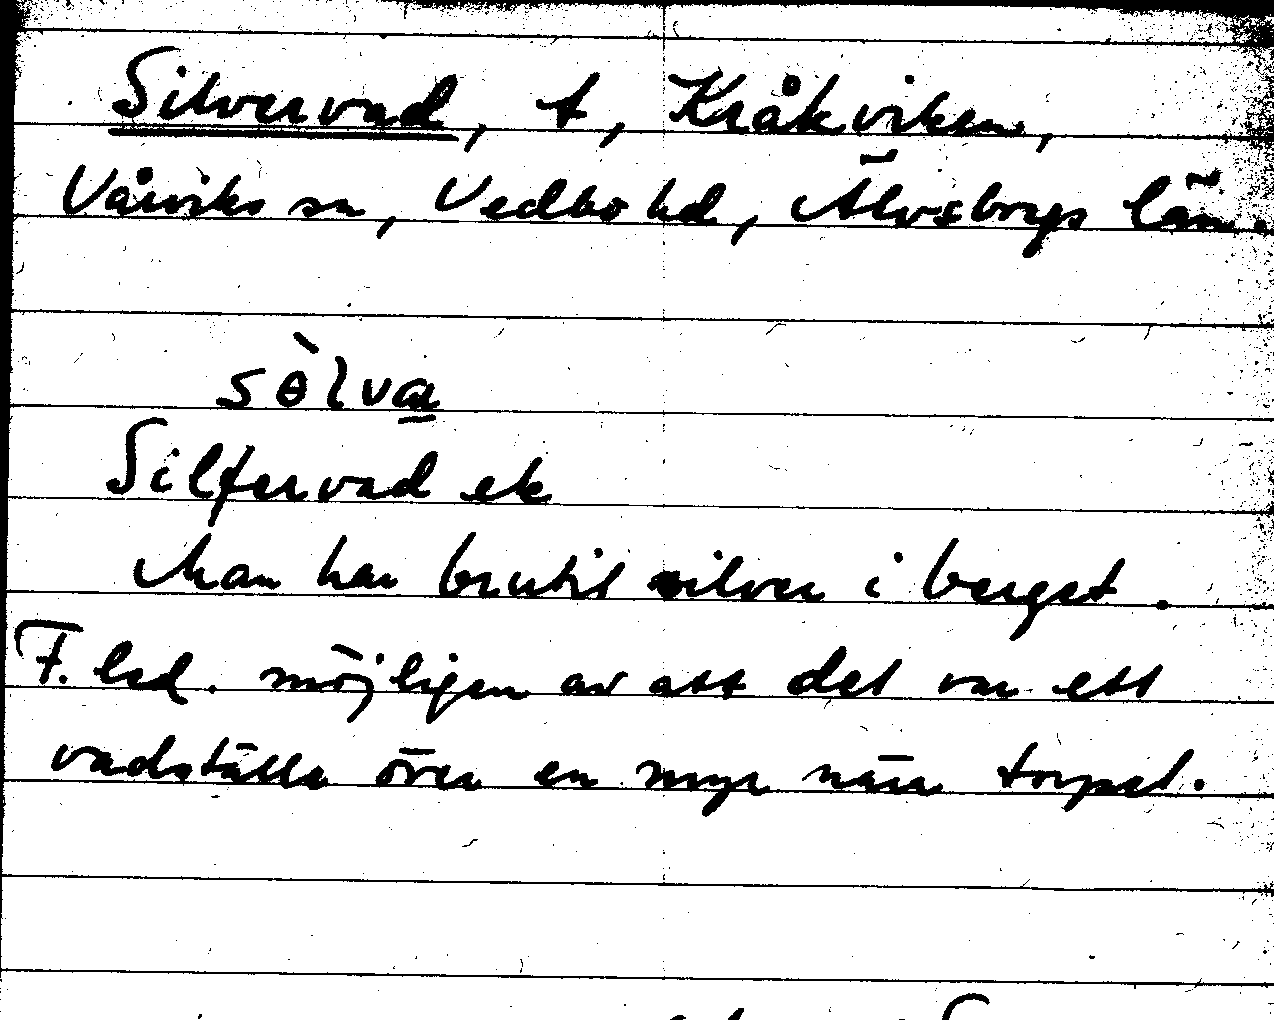 Silvervad, t, Kråkviken,
Vårviks sn, Vedbo hd, Älvsborgs län.
sòlva
Silfervad ek
Man har brutit silver i berget.
F. led. möjligen av att det var ett
vadställe över en myr nära torpet.